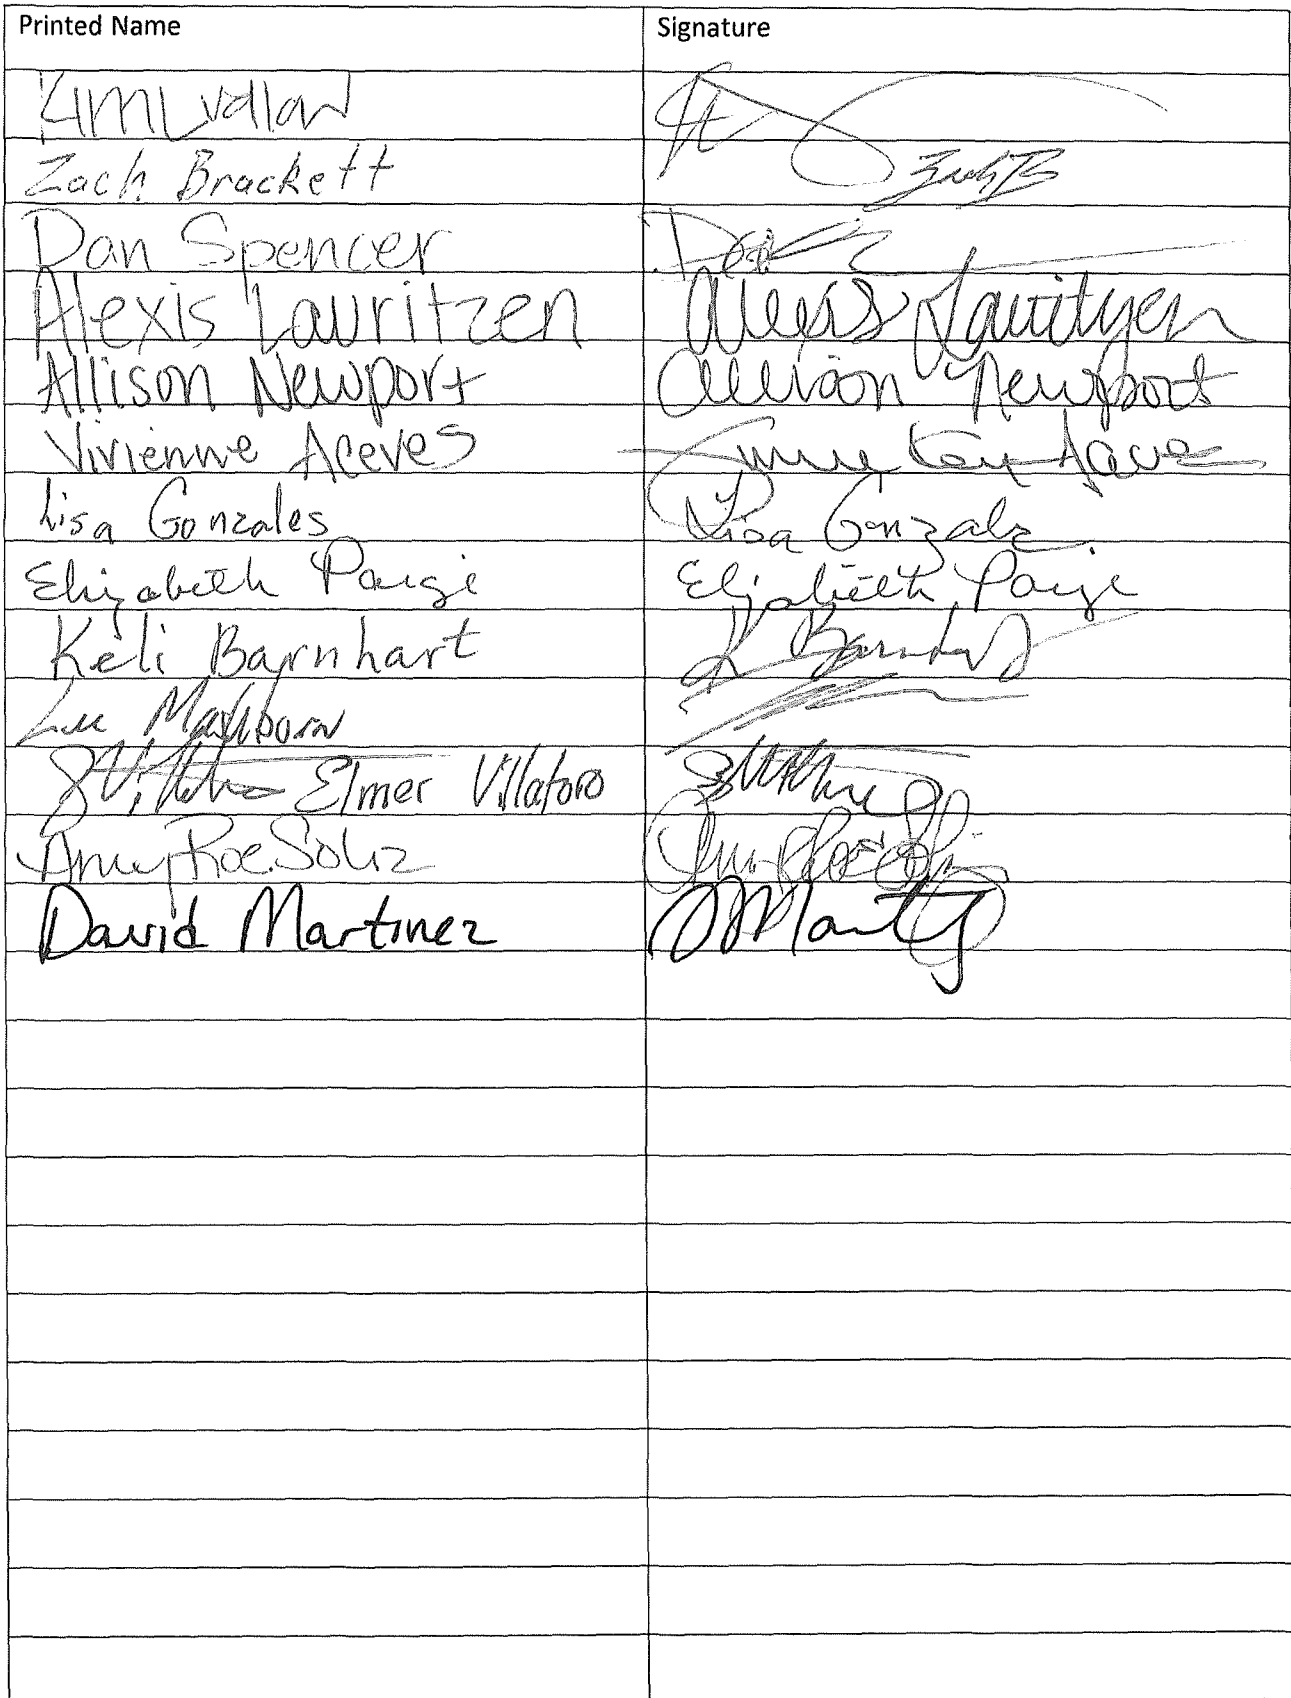 Printed Name Signature
Kim Ludlow
Zach Brackett Zach B
Dan Spencer
Alexis Lauritzen Alexis Lauritzen
Allison Newport Allison Newport
Vivienne Aceves Aceves
Lisa Gonzales Lisa Gonzales
Elizabeth Paige Elizabeth Paige
Keli Barnhart K Barnhart
Mashborn
Elmer Villatoro
Amy Roe Soliz Amy Roe Soliz
David Martinez